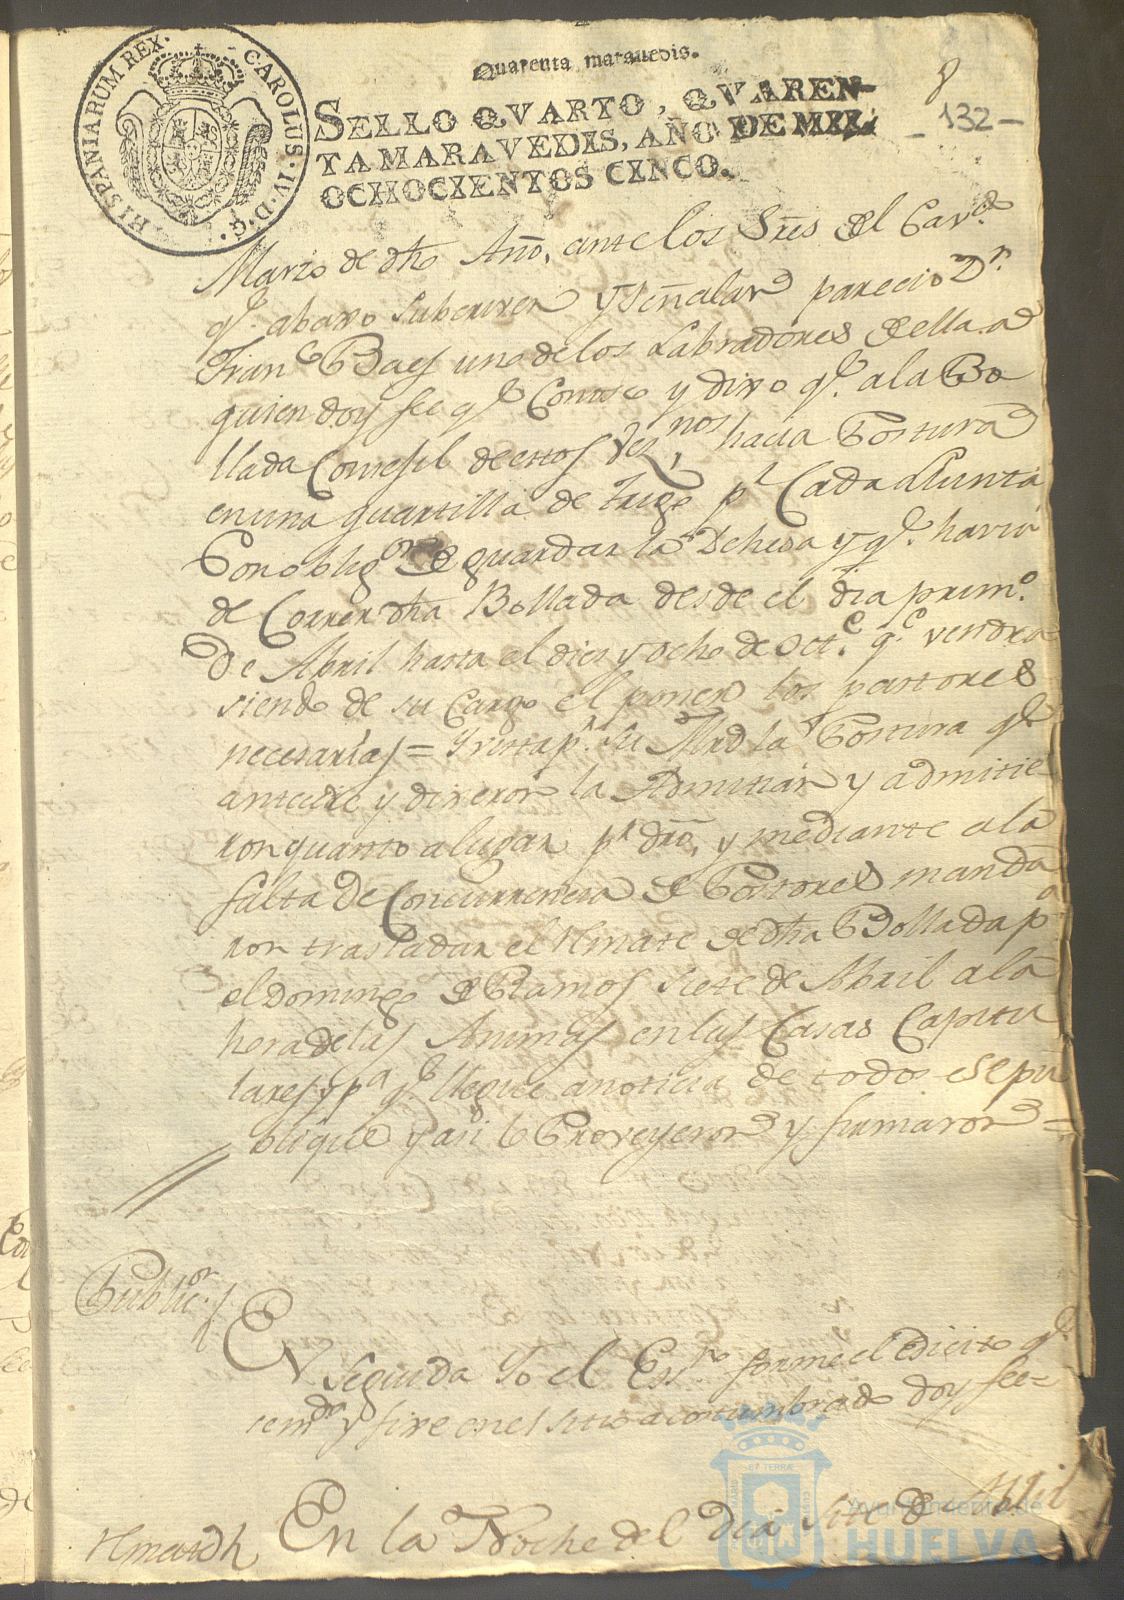 Quarenta maravedis.
SELLO QVARTO, QVAREN-
TA MARAVEDIS, AÑO DE MIL
OCHOCIENTOS CINCO.
HISPANIARUM REX. CAROLUS. IV. D. G.
8
-132-
Marzo de dho Año, ante los Sres del Cav.do
q.e abaxo subscriven y señalan parecio D.n
Fran.co Baes uno de los Labradores de ella a
quien doy fee q.e Conosco y dixo q.e a la Bo
llada Consegil de estos Vez.nos hacia Postura
en una quartilla de trigo p.r Cada Yunta
Con oblig.on de guardar la Dehesa y q.e havia
de Correr dha Bollada desde el dia prim.o
de Abril hasta el dies y ocho de Oct.e q.e vendra
siendo de su Cargo el poner los pastores
necesarios = Y vista p.r su Mrd la Postura q.e
antecede y dixeron la Admitian y admitie
ron quanto a lugar p.r dro, y mediante a la
falta de Concurrencia de Postores manda
ron trasladar el Rmate de dha Bollada p.a
el domingo de Ramos siete de Abril a la
hora de las Animas en las Casas Capitu
lares y p.a q.e llegue a noticia de todos se pu
blique y asi lo Proveyeron y firmaron =
Public.on
En
seguida Yo el Ess.no forme el Edicto q.e
se m.da y fixe en el sitio acostumbrado doy fee=
Rmate
En la Noche del dia siete de Abril
Ayuntamiento de
HUELVA